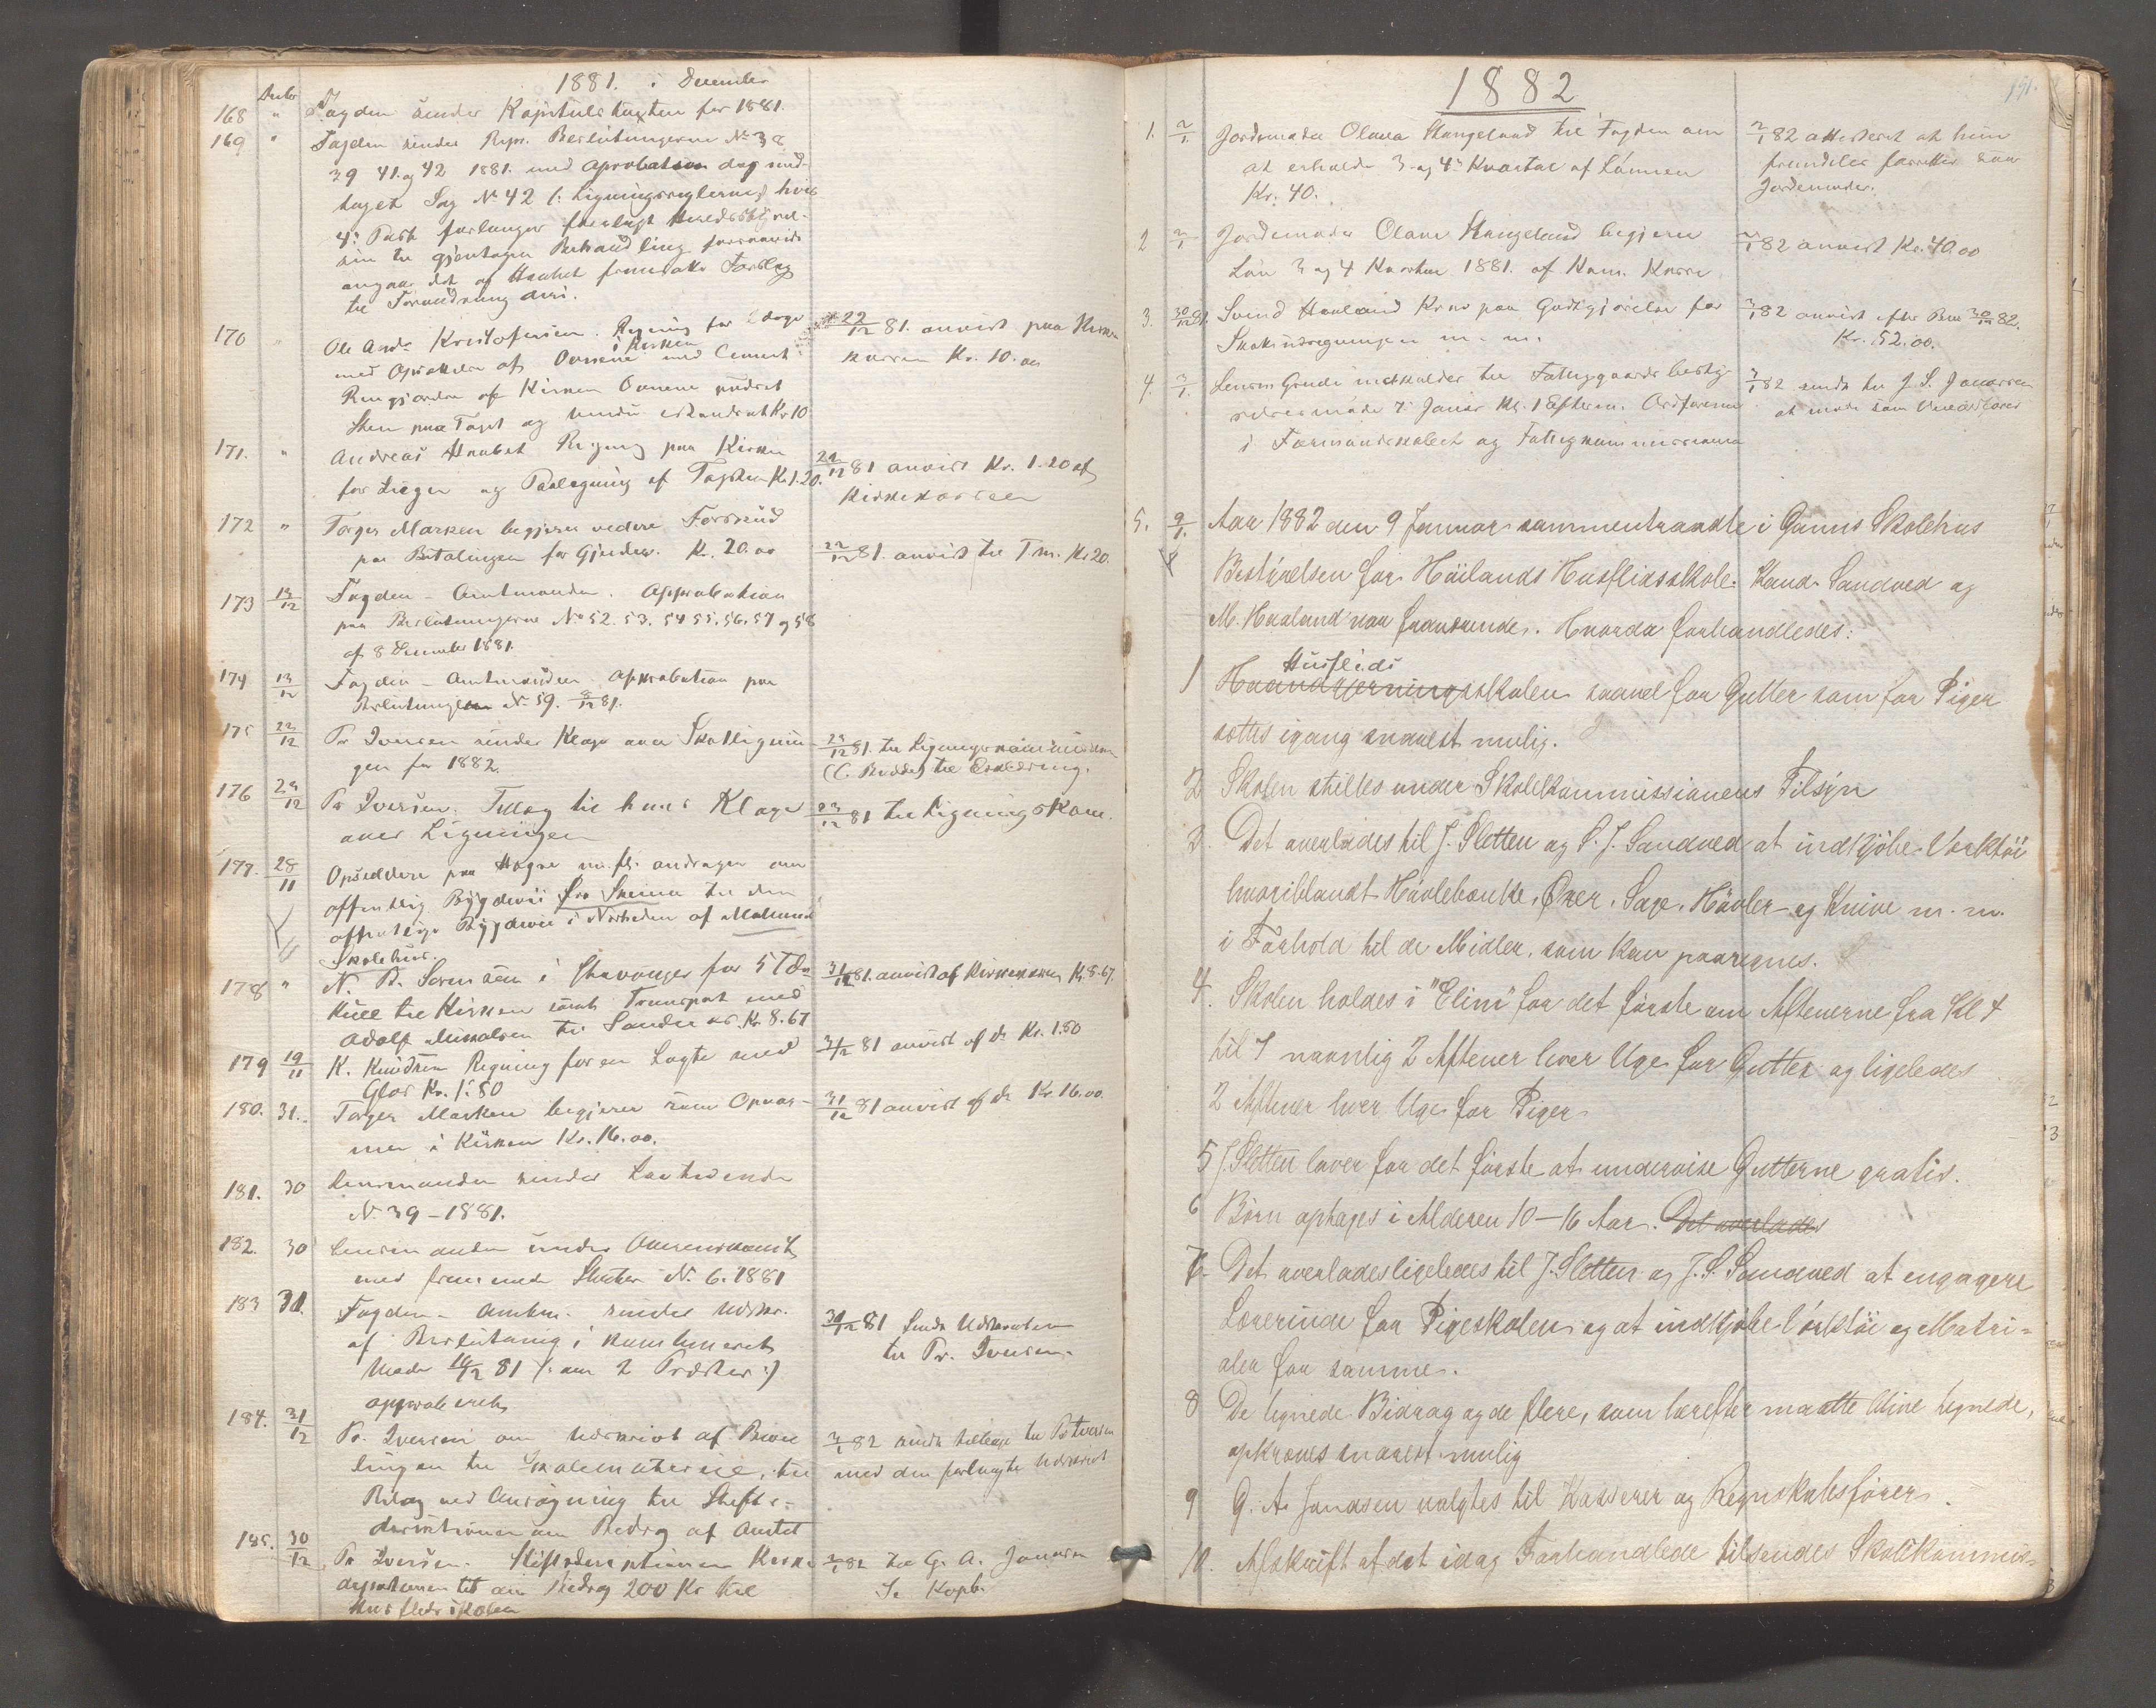 1881. i December
Decbr
168 " Fogden sender Kapitelstaxten for 1881.
169 " Fogden sender Repr. Beslutningerne No 38
39 41 og 42 1881. med Aprobation dog und-
taget Sag No 42 /: Ligningsreglerne, hvis
4. Post forlanges forelagt Herredsstyrel-
sen til gjentagen Behandling forsaavidt
angaar det af Haabet fremsatte Forslag
til Forandring deri.
170 " Ole Andr Kristofersen. Regning for 2 dage
med Opsætten af Ovnene i Kirken med Cement
Rengjøren af Kirken Ovnene
Sten paa Taget og Kr 10
22/12 81. anvist paa Kirke
kassen Kr. 10.00
171. " Andreas Haabet Regning paa Kirken
for Stiger og Paalægning af Tagsten Kr 1.20.
22/12 81 anvist Kr. 1.20 af
Kirkekassen
172 " Torger Marken begjerer videre Forskud
paa Betalingen for Gjerder. Kr. 20.00
22/12 81. anvist til T. M. Kr 20.
173 13/12 Fogden - Amtmanden. Approbation
paa Beslutningerne No 52. 53. 54 55. 56. 57 og 58
af 8 December 1881.
174 13/12 Fogden - Amtmanden Approbation paa
Beslutningen No 59. 8/12 81.
175 22/12 Pr Iversen sender Klage over Skatligni-
gen for 1882.
23/12 81. til Ligningskommissionen
(C. Budde) til Erklæring.
176 23/12 Pr Iversen. Tillæg til hans Klage
over Ligningen
23/12 81 til Ligningskom.
177. 28/11 Opsiddere paa Hogne m. fl. andrager om
offentlig Bygdevei fra Skeiene til den
offentlige Bygdevei i Nærheden af Malmeim
Skolehus.
178 " N. B. Sørensen i Stavanger for 5 Tdr
Kull til Kirken samt Transport med
Adolf til Sandnes. Kr. 8.67
31/12 81. anvist af Kirkekassen Kr. 8.67.
179 19/11 K. Knudsen Regning for en Løgte med
Glas Kr. 1.50
31/12 81 anvist af do Kr. 1.50
180. 31. Torger Marken begjerer som Opvar-
mer i Kirken Kr. 16.00.
31/12 81 anvist af do Kr. 16.00.
181. 30 Lensmanden sender Lovtidende
N. 39 - 1881.
182. 30 Lensmanden sender
med fremmede Skatter N. 6. 1881
183 31. Fogden - Amtm. sender Udskr.
af Beslutning i kombineret
Møde 14/12 81 /: om 2 Præster :/
approberet
30/12 81 sendt Udskriften
til Pr. Iversen.
184. 31/12 Pr. Iversen om Udskrivt af Bevil
lingen til Skolematerie, til
Bilag ved Ansøgning til Stifts-
direktionen om Bidrag af Amtet
3/1 82 sendt tilbage til Pr Iversen
med den forlangte Udskrivt
185. 30/12 Pr Iversen. Stiftsdirektionen Kirke
departementet om Bidrag 200 Kr til
Husflidsskolen
3/1 82 til G. A. Jonassen
Se Kopb.
1882
191.
1. 2/1 Jordemoder Olava Stangeland til Fogden om
at erholde 3. og 4. Kvartal af Lønnen
Kr. 40.
2/1 82 attesteret at hun
fremdeles forretter som
Jordemoder.
2 2/1 Jordemoder Olava Stangeland begjerer
Løn 3 og 4 Kvartal 1881. af Kom. Kassen
2/1 82 anvist Kr. 40.00
3. 30/12 81. Svend Haaland Krav paa Godtgjørelse for
Skatudregningen m. m.
3/1 82 anvist efter Besl 30/12 82.
Kr. 52.00.
4. 3/1 Lensm Grude indkalder til Fattiggaards besty
relsesmøde 7. Januar Kl. 1 Efterm. Ordføreren
i Formandskabet og Fattigkommissionen
3/1 82 sendt til J. S. Jonassen
at møde som Viceordfører
5. 9/1 Aar 1882 den 9 Januar sammentraadte i Ganns Skolehus
Bestyrelsen for Høilands Husflidsskole. Kand. Sandved og
M. Haaland var fraværende. Hvorda forhandledes:
1 Haandgjernings Husflids skolen saavel for Gutter som for Piger
sættes igang snarest mulig.
2 Skolen stilles under Skolekommissionens Tilsyn
3. Det overlades til J. Sletten og S. J. Sandved at indkjøbe Verktøi
hvoriblandt Høvlebænke, Øxer, Sage, Høvler og Knive m. m.
i Forhold til de Midler, som kan paaregnes.
4. Skolen holdes i "Elim" for det første om Aftenerne fra Kl 4
til 7 navnlig 2 Aftener hver Uge for Gutter og ligeledes
2 Aftener hver Uge for Piger.
5 J. Sletten lover for det første at undervise Gutterne gratis.
6 Børn optages i Alderen 10-16 Aar. Det overlades
7. Det overlades ligeledes til J. Sletten og J. S. Sandved at engagere
Lærerinde for Pigeskolen og at indkjøbe Verktøi og Matri-
aler for samme.
8 De tegnede Bidrag og de flere, som herefter maatte blive tegnede,
opkræves snarest mulig
9 G. A. Jonassen valgtes til Kasserer og Regnskabsfører.
10. Afskrift af det idag Forhandlede tilsendes Skolekommis-